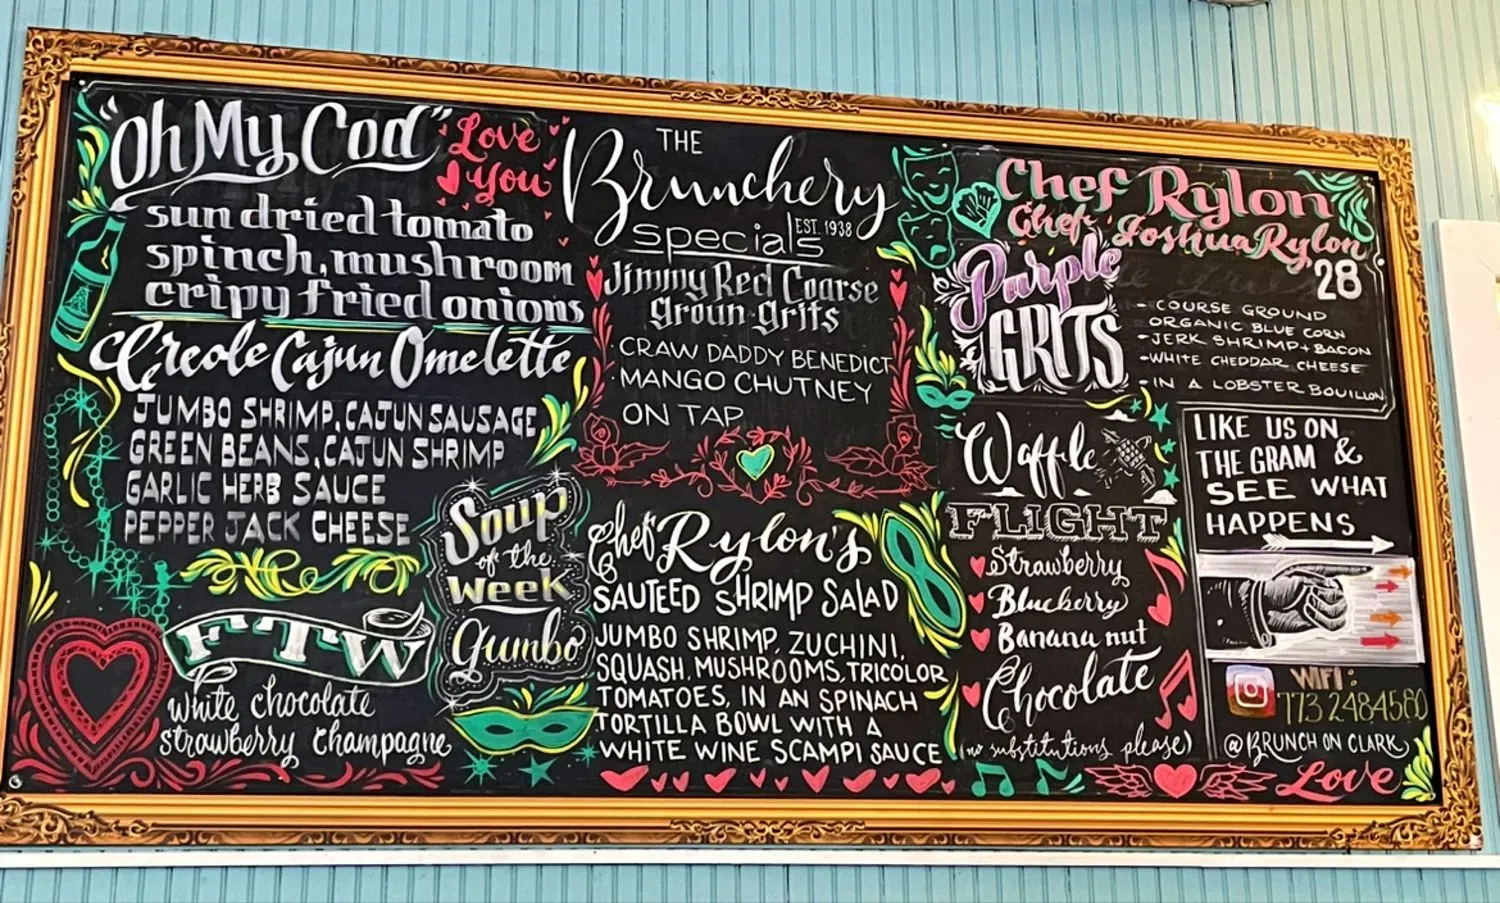 "Oh My Cod"
Love
You
sundried tomato
spinch, mushroom
cripy fried onions
Creole Cajun Omelette
JUMBO SHRIMP, CAJUN SAUSAGE
GREEN BEANS, CAJUN SHRIMP
GARLIC HERB SAUCE
PEPPER JACK CHEESE
Soup
of the
Week
Gumbo
FTW
white chocolate
strawberry champagne
THE
Brunchery
EST. 1938
specials
Jimmy Red Coarse
Groun Grits
CRAW DADDY BENEDICT
MANGO CHUTNEY
ON TAP
Chef Rylon's
SAUTEED SHRIMP SALAD
JUMBO SHRIMP, ZUCHINI,
SQUASH, MUSHROOMS, TRICOLOR
TOMATOES, IN AN SPINACH
TORTILLA BOWL WITH A
WHITE WINE SCAMPI SAUCE
Chef Rylon
Chef Joshua Rylon
28
Purple
GRITS
- COURSE GROUND
ORGANIC BLUE CORN
- JERK SHRIMP + BACON
- WHITE CHEDDAR CHEESE
- IN A LOBSTER BOUILLON
Waffle
FLIGHT
Strawberry
Blueberry
Banana nut
Chocolate
(no substitutions please)
LIKE US ON
THE GRAM &
SEE WHAT
HAPPENS
WIFI:
773 2484580
@BRUNCH ON CLARK
Love